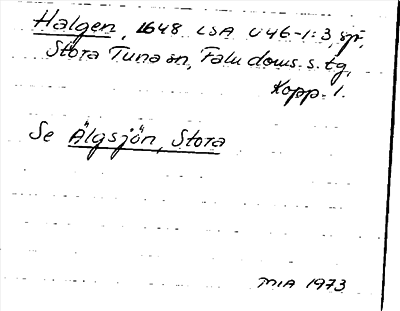 Halgen, 1648 LSA U46-1:3, spr,
Stora Tuna sn, Falu doms. s. tg,
Kopp. l.
Se Älgsjön, Stora
MIA 1973